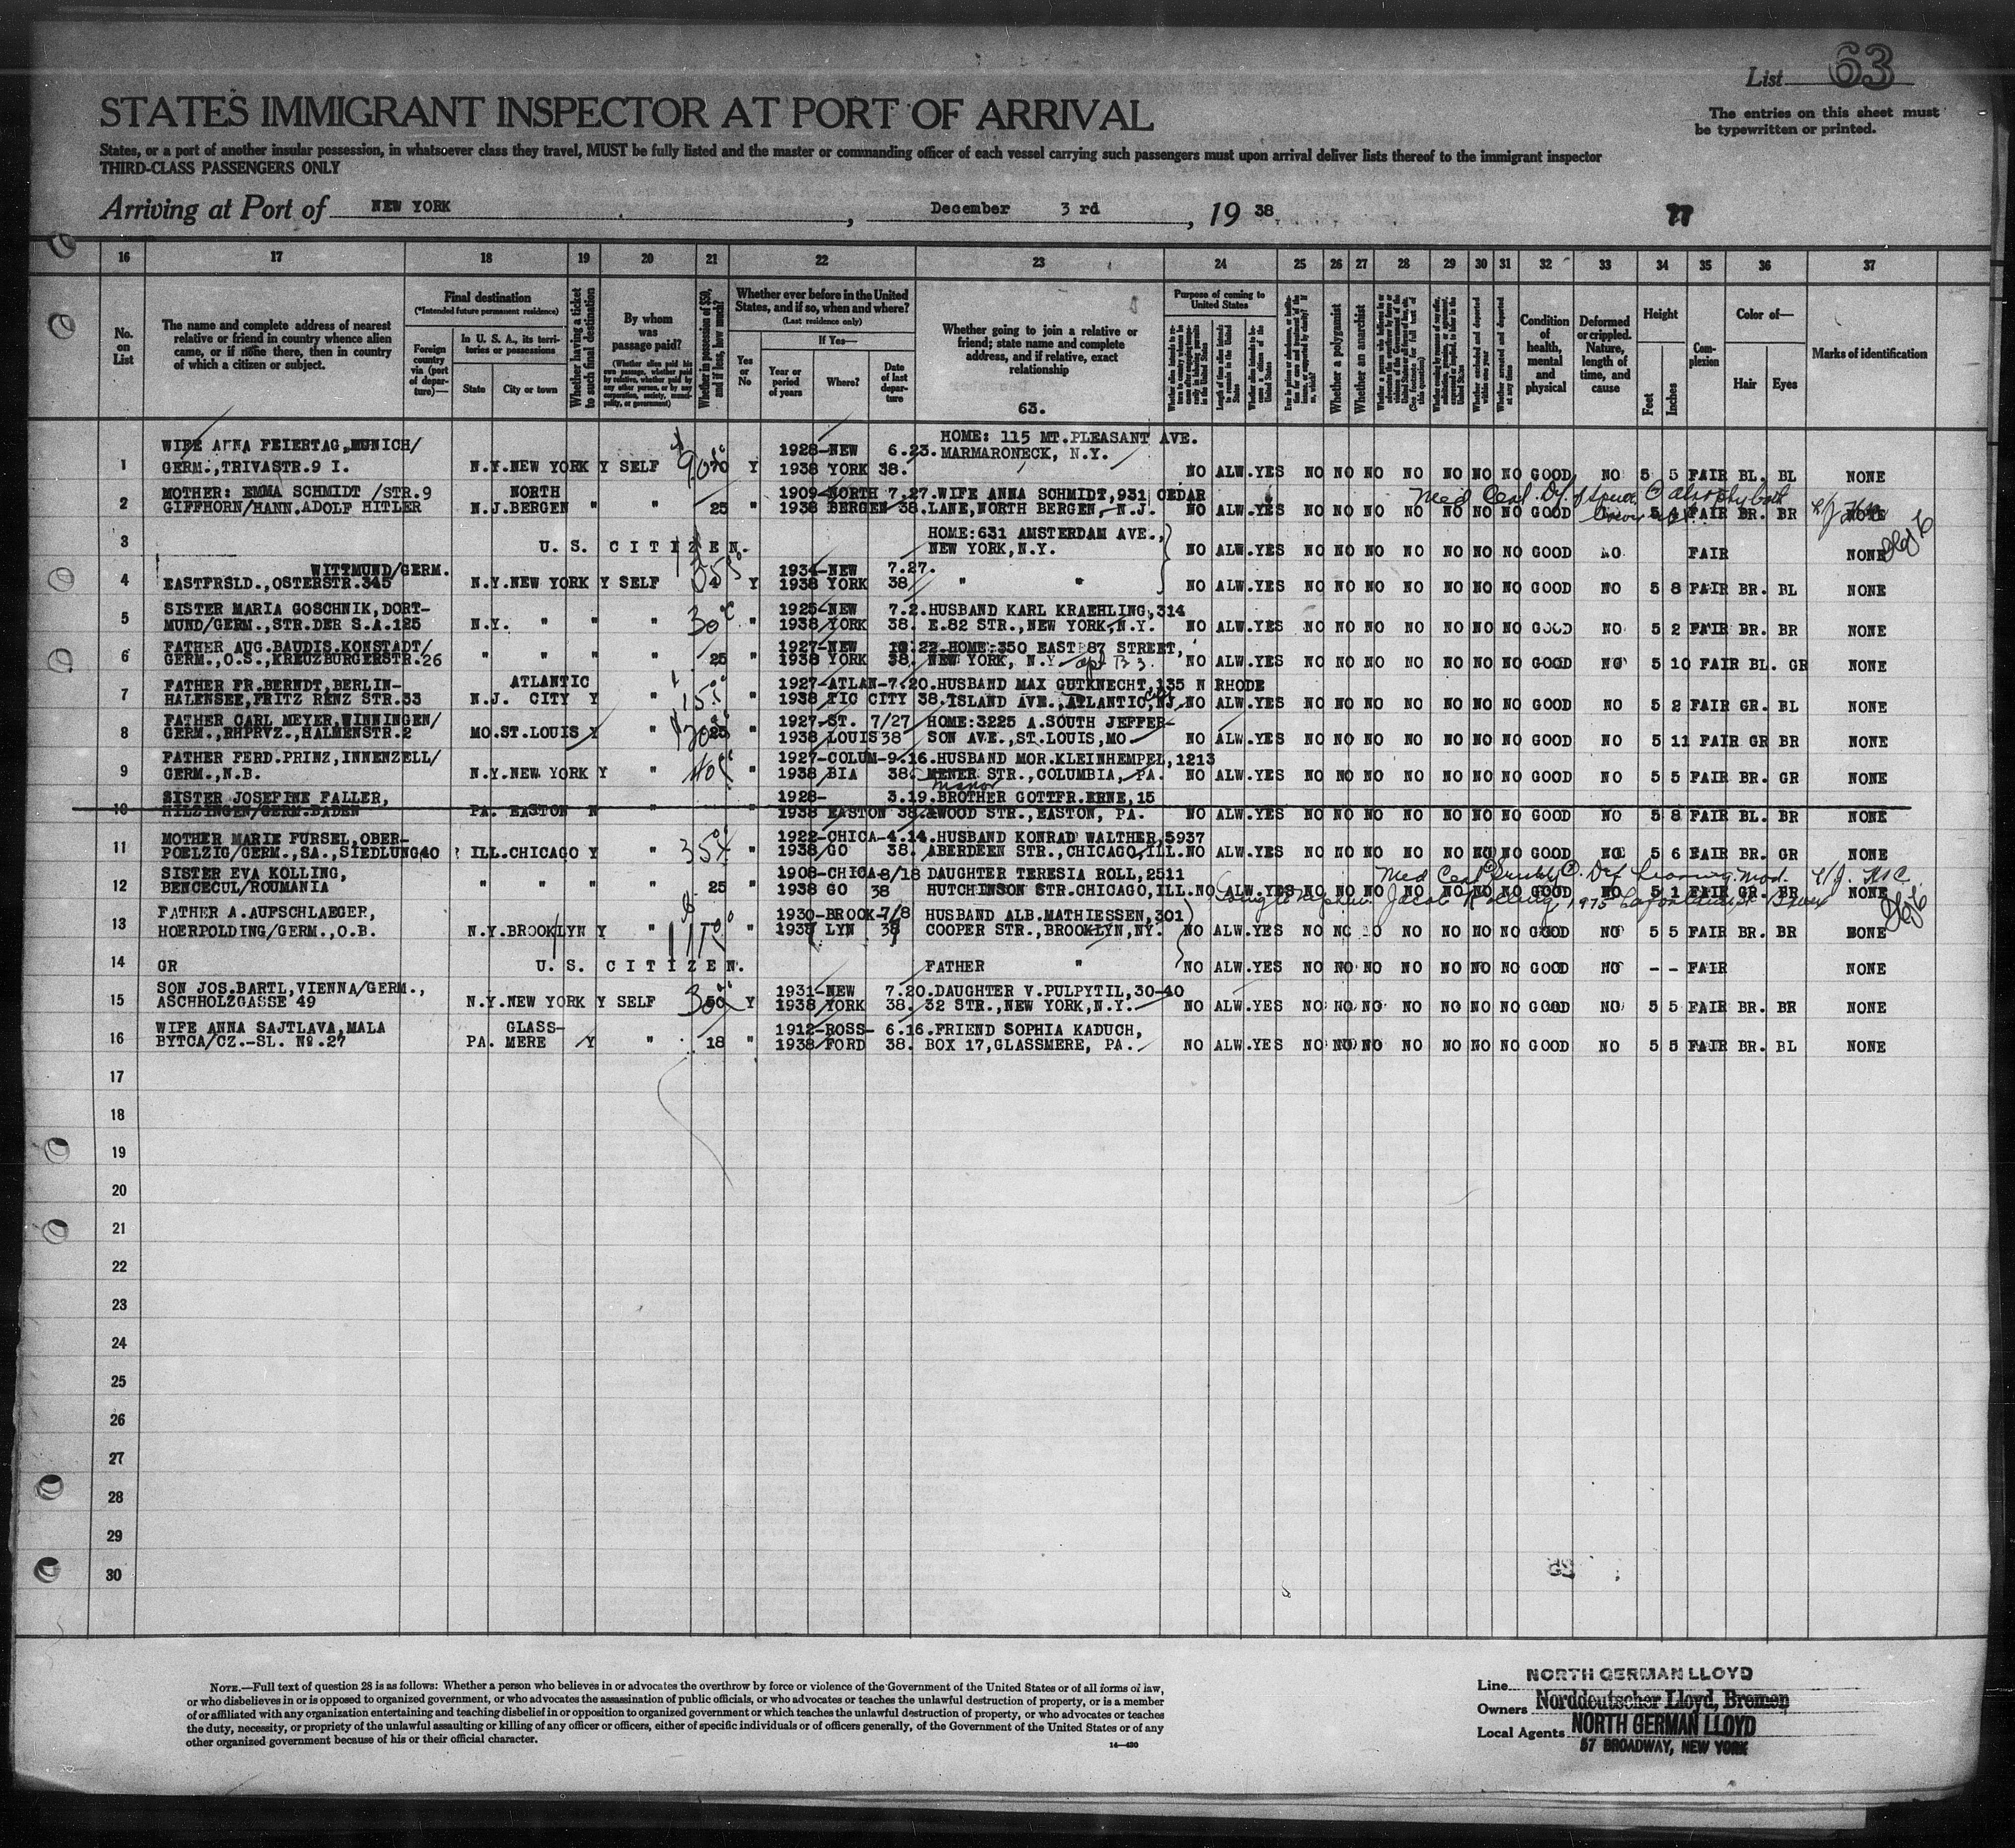 List 63
The entries on this sheet must
be typewritten or printed.
STATES IMMIGRANT INSPECTOR AT PORT OF ARRIVAL
States, or a port of another insular possession, in whatsoever class they travel, MUST be fully listed and the master or commanding officer of each vessel carrying such passengers must upon arrival deliver lists thereof to the immigrant inspector
THIRD-CLASS PASSENGERS ONLY
Arriving at Port of NEW YORK, December 3 rd, 19 38.
16 17 18 19 20 21 22 23 24 25 26 27 28 29 30 31 32 33 34 35 36 37
No. on List
The name and complete address of nearest relative or friend in country whence alien came, or if none there, then in country of which a citizen or subject.
Final destination
(*Intended future permanent residence)
Foreign country via (port of departure)—
In U. S. A., its territories or possessions
State City or town
Whether having a ticket to such final destination
By whom was passage paid?
(Whether alien paid his own passage, whether paid by relative, whether paid by any other person, or by any corporation, society, municipality, or government)
Whether in possession of $50, and if less, how much?
Whether ever before in the United States, and if so, when and where?
(Last residence only)
Yes or No
If Yes—
Year or period of years
Where?
Date of last departure
Whether going to join a relative or friend; state name and complete address, and if relative, exact relationship
63.
Purpose of coming to United States
Whether a polygamist
Whether an anarchist
Condition of health, mental and physical
Deformed or crippled. Nature, length of time, and cause
Height
Feet Inches
Complexion
Color of—
Hair Eyes
Marks of identification
1 WIFE ANNA FEIERTAG, MUNICH/ 1928-NEW 6.23. HOME: 115 MT.PLEASANT AVE.
GERM.,TRIVASTR.9 I. N.Y. NEW YORK Y SELF Y 1938 YORK 38. MARMARONECK, N.Y. NO ALW. YES NO NO NO NO NO NO NO GOOD NO 5 5 FAIR BL. BL NONE
2 MOTHER: EMMA SCHMIDT /STR.9 NORTH 1909-NORTH 7.27. WIFE ANNA SCHMIDT,931 CEDAR
GIFFHORN/HANN.ADOLF HITLER N.J. BERGEN " " 25 " 1938 BERGEN 38. LANE,NORTH BERGEN, N.J. NO ALW. YES NO NO NO NO NO NO NO GOOD FAIR BR. BR NONE
3 U. S. CITIZEN. HOME:631 AMSTERDAM AVE.,
NEW YORK,N.Y. NO ALW. YES NO NO NO NO NO NO NO GOOD NO FAIR NONE
4 WITTMUND/GERM. 1934-NEW 7.27.
EASTFRSLD.,OSTERSTR.345 N.Y. NEW YORK Y SELF Y 1938 YORK 38 " " NO ALW. YES NO NO NO NO NO NO NO GOOD NO 5 8 FAIR BR. BL NONE
5 SISTER MARIA GOSCHNIK,DORT- 1925-NEW 7.2. HUSBAND KARL KRAEHLING,314
MUND/GERM.,STR.DER S.A.125 N.Y. " " " 30 " 1938 YORK 38. E.82 STR.,NEW YORK,N.Y. NO ALW. YES NO NO NO NO NO NO NO GOOD NO 5 2 FAIR BR. BR NONE
6 FATHER AUG.BAUDIS,KONSTADT/ 1927-NEW 10.22. HOME:350 EAST 87 STREET,
GERM.,O.S.,KREUZBURGERSTR.26 " " " " 25 " 1938 YORK 38. NEW YORK, N.Y. apt B 3. NO ALW. YES NO NO NO NO NO NO NO GOOD NO 5 10 FAIR BL. GR NONE
7 FATHER FR.BERNDT,BERLIN- ATLANTIC 1927-ATLAN- 7.20. HUSBAND MAX GUTKNECHT,135 N RHODE
HALENSEE,FRITZ RENZ STR.33 N.J. CITY Y " " 1938 TIC CITY 38. ISLAND AVE.,ATLANTIC City,NJ. NO ALW. YES NO NO NO NO NO NO NO GOOD NO 5 2 FAIR GR. BL NONE
8 FATHER CARL MEYER,WINNINGEN/ 1927-ST. 7/27 HOME:3225 A.SOUTH JEFFER-
GERM.,RHPRVZ.,HALMENSTR.2 MO. ST.LOUIS Y " 25 " 1938 LOUIS 38 SON AVE.,ST.LOUIS,MO NO ALW. YES NO NO NO NO NO NO NO GOOD NO 5 11 FAIR GR BR NONE
9 FATHER FERD.PRINZ,INNENZELL/ 1927-COLUM- 9.16. HUSBAND MOR.KLEINHEMPEL,1213
GERM.,N.B. N.Y. NEW YORK Y " 40 " 1938 BIA 38. MENER STR.,COLUMBIA, PA. NO ALW. YES NO NO NO NO NO NO NO GOOD NO 5 5 FAIR BR. GR NONE
Manor
10 SISTER JOSEFINE FALLER, 1928- 3.19. BROTHER GOTTFR.ERNE,15
HILZINGEN/GERM.BADEN PA. EASTON N " " 1938 EASTON 38. WOOD STR.,EASTON, PA. NO ALW. YES NO NO NO NO NO NO NO GOOD NO 5 8 FAIR BL. BR NONE
11 MOTHER MARIE FURSEL,OBER- 1922-CHICA- 4.14. HUSBAND KONRAD WALTHER,5937
POELZIG/GERM.,SA.,SIEDLUNG40 ILL. CHICAGO Y " 35 " 1938 GO 38. ABERDEEN STR.,CHICAGO,ILL. NO ALW. YES NO NO NO NO NO NO NO GOOD NO 5 6 FAIR BR. GR NONE
12 SISTER EVA KOLLING, 1908-CHICA- 8/18 DAUGHTER TERESIA ROLL,2511
BENCECUL/ROUMANIA " " " " 25 " 1938 GO 38 HUTCHINSON STR.CHICAGO,ILL. NO ALW. YES NO NO NO NO NO NO NO GOOD NO 5 1 FAIR GR. BR NONE
13 FATHER A.AUFSCHLAEGER, 1930-BROOK- 7/8 HUSBAND ALB.MATHIESSEN,301
HOERPOLDING/GERM.,O.B. N.Y. BROOKLYN Y " " 1938 LYN 38 COOPER STR.,BROOKLYN,NY. NO ALW. YES NO NO NO NO NO NO NO GOOD NO 5 5 FAIR BR. BR NONE
14 GR U. S. CITIZEN. FATHER " NO ALW. YES NO NO NO NO NO NO NO GOOD NO - - FAIR NONE
15 SON JOS.BARTL,VIENNA/GERM., 1931-NEW 7.20. DAUGHTER V.PULPYTIL,30-40
ASCHHOLZGASSE 49 N.Y. NEW YORK Y SELF Y 1938 YORK 38. 32 STR.,NEW YORK,N.Y. NO ALW. YES NO NO NO NO NO NO NO GOOD NO 5 5 FAIR BR. BR NONE
16 WIFE ANNA SAJTLAVA,MALA GLASS- 1912-ROSS- 6.16. FRIEND SOPHIA KADUCH,
BYTCA/CZ.-SL. No.27 PA. MERE Y " 18 " 1938 FORD 38. BOX 17,GLASSMERE, PA. NO ALW. YES NO NO NO NO NO NO NO GOOD NO 5 5 FAIR BR. BL NONE
17
18
19
20
21
22
23
24
25
26
27
28
29
30
NOTE.—Full text of question 28 is as follows: Whether a person who believes in or advocates the overthrow by force or violence of the Government of the United States or of all forms of law,
or who disbelieves in or is opposed to organized government, or who advocates the assassination of public officials, or who advocates or teaches the unlawful destruction of property, or is a member
of or affiliated with any organization entertaining and teaching disbelief in or opposition to organized government or which teaches the unlawful destruction of property, or who advocates or teaches
the duty, necessity, or propriety of the unlawful assaulting or killing of any officer or officers, either of specific individuals or of officers generally, of the Government of the United States or of any
other organized government because of his or their official character.
14—430
Line NORTH GERMAN LLOYD
Owners Norddeutscher Lloyd, Bremen
Local Agents NORTH GERMAN LLOYD
57 BROADWAY, NEW YORK